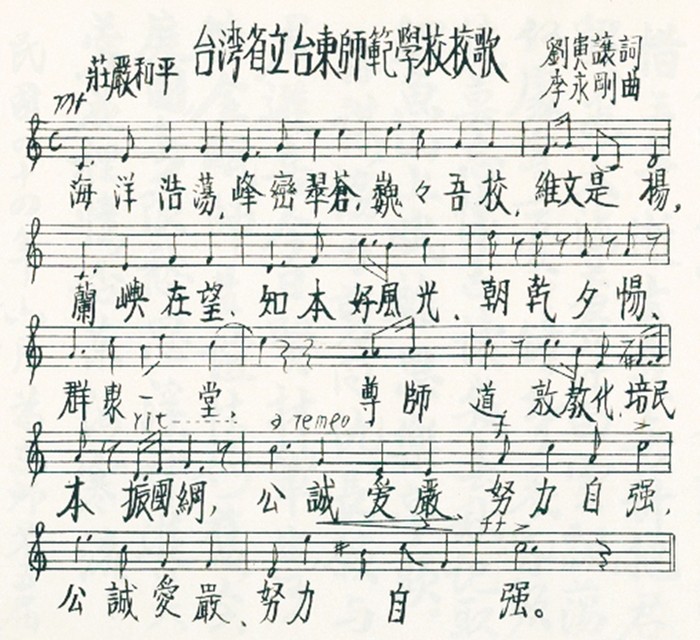 台湾省立台東師範學校校歌
莊嚴和平
劉寅讓詞
李永剛曲
mf
海洋浩蕩,峰巒翠蒼,巍々吾校,維文是揚,
蘭嶼在望、知本好風光、朝乾夕惕、
群聚一堂、尊師道,敦教化,培民
rit a tempo
本振國綱,公誠爱嚴、努力自强,
f
ff
公誠愛嚴、努力自强。